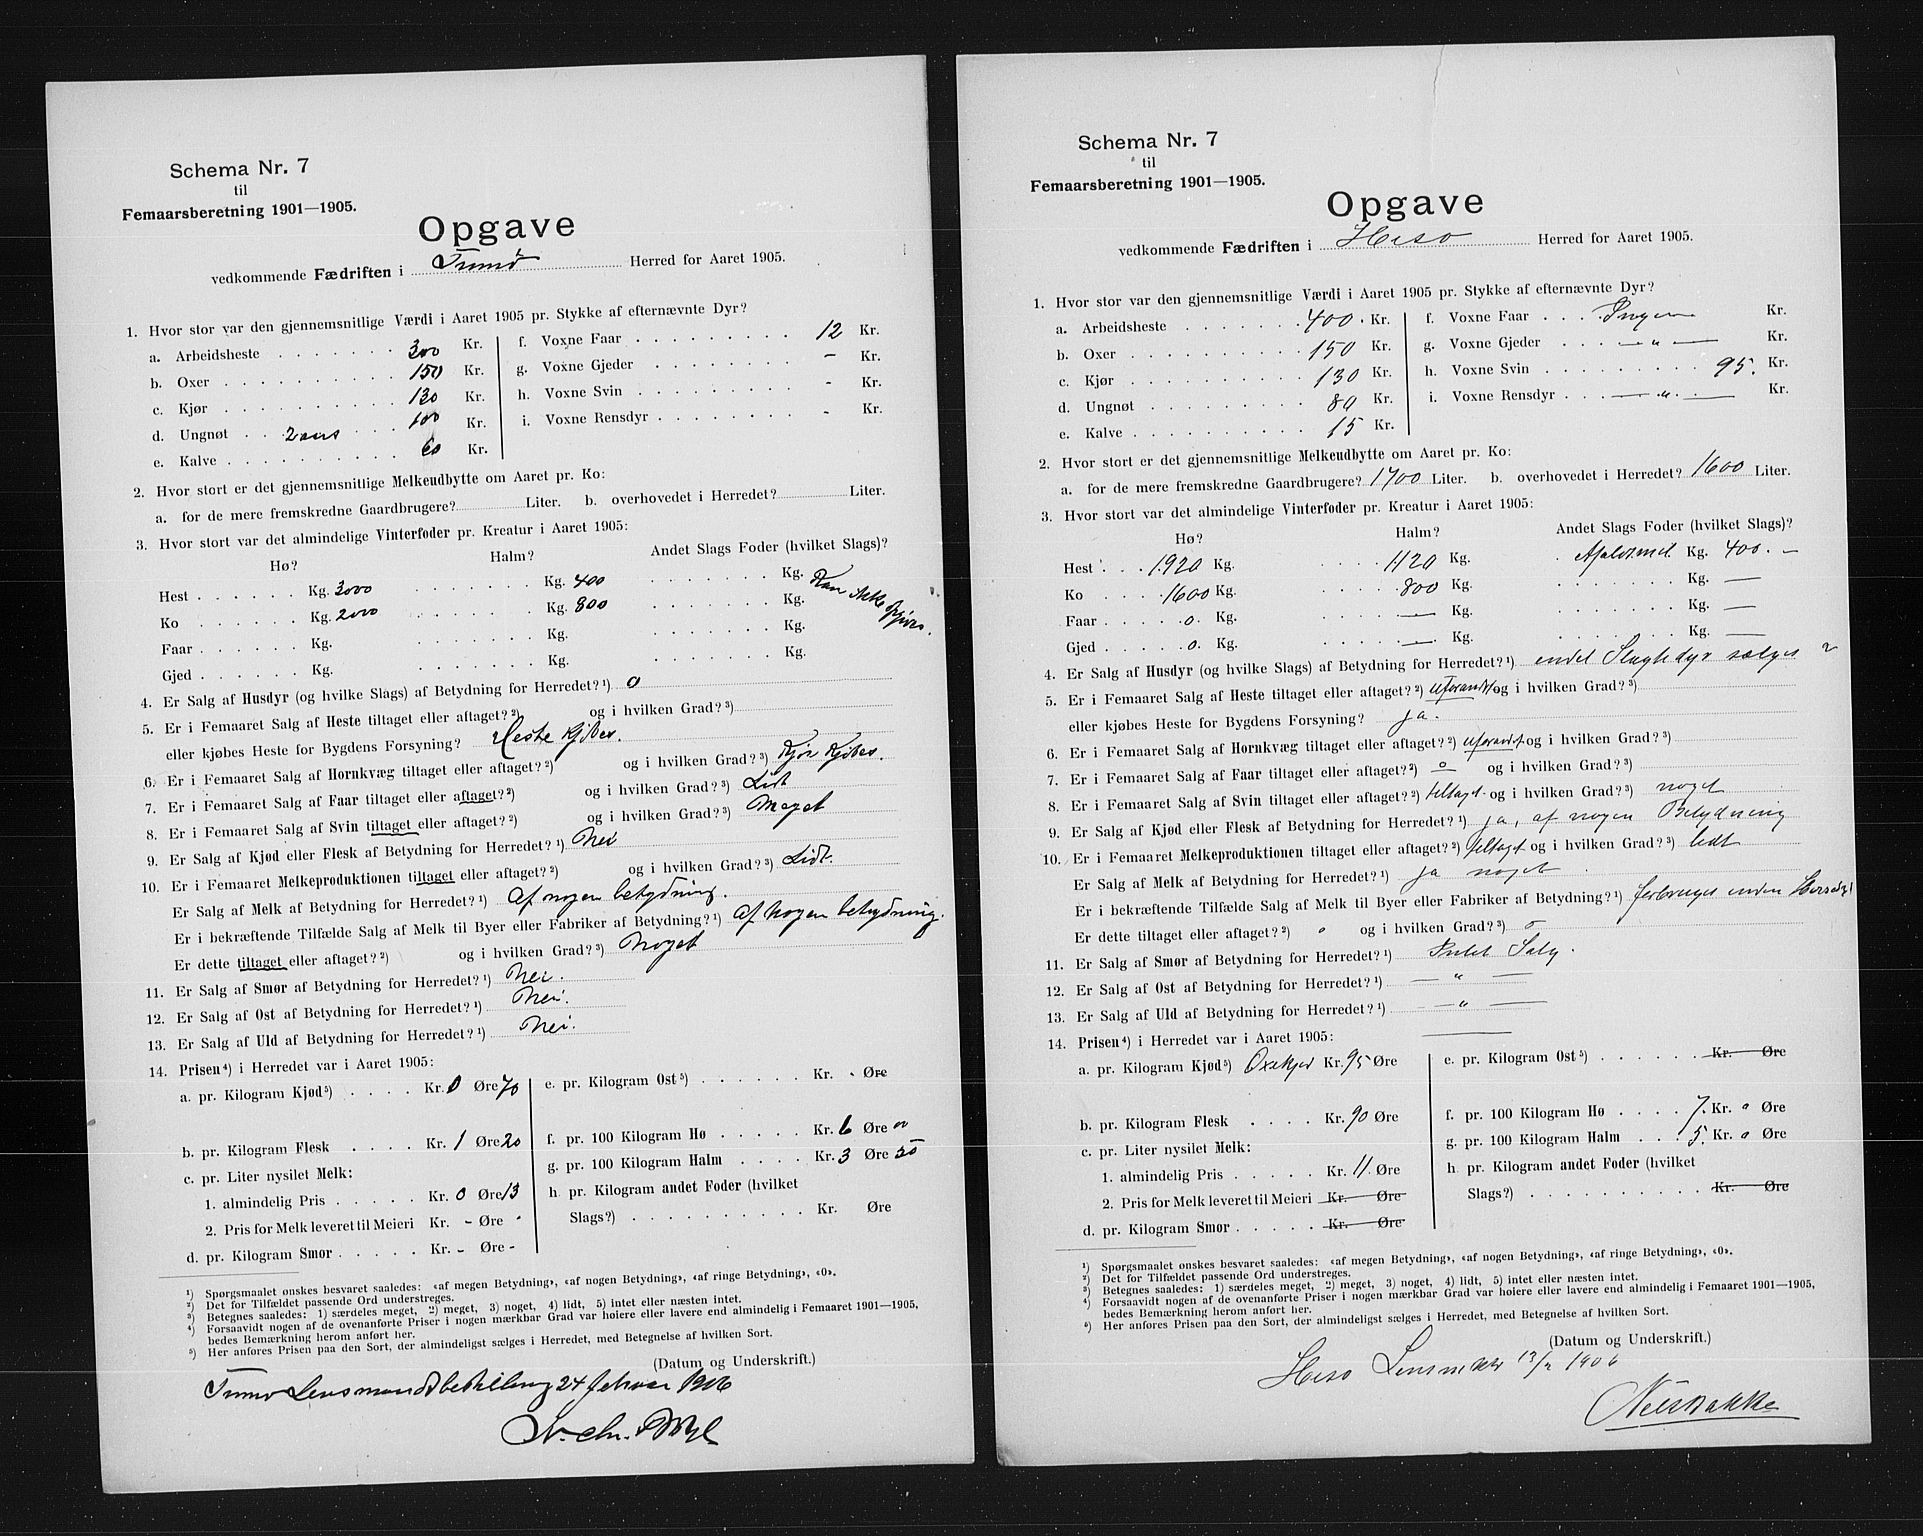 Schema Nr. 7
til
Femaarsberetning 1901—1905.
Opgave
vedkommende Fædriften i Tromø Herred for Aaret 1905.
1. Hvor stor var den gjennemsnitlige Værdi i Aaret 1905 pr. Stykke af efternævnte Dyr?
a. Arbeidsheste 300 Kr.
b. Oxer 150 Kr.
c. Kjør 130 Kr.
d. Ungnøt 2 aars 100 Kr.
e. Kalve 60 Kr.
f. Voxne Faar 12 Kr.
g. Voxne Gjeder - Kr.
h. Voxne Svin - Kr.
i. Voxne Rensdyr - Kr.
2. Hvor stort er det gjennemsnitlige Melkeudbytte om Aaret pr. Ko:
a. for de mere fremskredne Gaardbrugere? Liter. b. overhovedet i Herredet? Liter.
3. Hvor stort var det almindelige Vinterfoder pr. Kreatur i Aaret 1905:
Hø? Halm? Andet Slags Foder (hvilket Slags)?
Hest Kg. 3000 Kg. 400 Kg. Kan ikke
Ko Kg. 2000 Kg. 800 Kg. opgives.
Faar Kg. Kg. Kg.
Gjed Kg. Kg. Kg.
4. Er Salg af Husdyr (og hvilke Slags) af Betydning for Herredet?¹) 0
5. Er i Femaaret Salg af Heste tiltaget eller aftaget?²) og i hvilken Grad?³)
eller kjøbes Heste for Bygdens Forsyning? Heste kjøbes.
6. Er i Femaaret Salg af Hornkvæg tiltaget eller aftaget?²) og i hvilken Grad?³) Kjør kjøbes.
7. Er i Femaaret Salg af Faar tiltaget eller aftaget?²) og i hvilken Grad?³) Lidt
8. Er i Femaaret Salg af Svin tiltaget eller aftaget?²) og i hvilken Grad?³) Meget
9. Er Salg af Kjød eller Flesk af Betydning for Herredet?¹) Nei
10. Er i Femaaret Melkeproduktionen tiltaget eller aftaget?²) og i hvilken Grad?³) Lidt.
Er Salg af Melk af Betydning for Herredet?¹) af nogen betydning.
Er i bekræftende Tilfælde Salg af Melk til Byer eller Fabriker af Betydning?¹) af nogen betydning.
Er dette tiltaget eller aftaget?²) og i hvilken Grad?³) Noget
11. Er Salg af Smør af Betydning for Herredet?¹) Nei.
12. Er Salg af Ost af Betydning for Herredet?¹) Nei.
13. Er Salg af Uld af Betydning for Herredet?¹) Nei.
14. Prisen⁴) i Herredet var i Aaret 1905:
a. pr. Kilogram Kjød⁵) Kr. 0 Øre 70
b. pr. Kilogram Flesk Kr. 1 Øre 20
c. pr. Liter nysilet Melk:
1. almindelig Pris Kr. 0 Øre 13
2. Pris for Melk leveret til Meieri Kr. - Øre -
d. pr. Kilogram Smør Kr. - Øre -
e. pr. Kilogram Ost⁵) Kr. - Øre
f. pr. 100 Kilogram Hø Kr. 6 Øre 00
g. pr. 100 Kilogram Halm Kr. 3 Øre 50
h. pr. Kilogram andet Foder (hvilket
Slags?) Kr. Øre
¹) Spørgsmaalet ønskes besvaret saaledes: «af megen Betydning», «af nogen Betydning», «af ringe Betydning», «0».
²) Det for Tilfældet passende Ord understreges.
³) Betegnes saaledes: 1) særdeles meget, 2) meget, 3) noget, 4) lidt, 5) intet eller næsten intet.
⁴) Forsaavidt nogen af de ovenanførte Priser i nogen mærkbar Grad var høiere eller lavere end almindelig i Femaaret 1901—1905,
bedes Bemærkning herom anført her.
⁵) Her anføres Prisen paa den Sort, der almindeligst sælges i Herredet, med Betegnelse af hvilken Sort.
(Datum og Underskrift.)
Tromø Lensmandsbestilling 24 februar 1906
Schema Nr. 7
til
Femaarsberetning 1901—1905.
Opgave
vedkommende Fædriften i Hisø Herred for Aaret 1905.
1. Hvor stor var den gjennemsnitlige Værdi i Aaret 1905 pr. Stykke af efternævnte Dyr?
a. Arbeidsheste 400. Kr.
b. Oxer 150 Kr.
c. Kjør 130 Kr.
d. Ungnøt 80 Kr.
e. Kalve 15 Kr.
f. Voxne Faar Ingen Kr.
g. Voxne Gjeder — " — Kr.
h. Voxne Svin 95. Kr.
i. Voxne Rensdyr — " — Kr.
2. Hvor stort er det gjennemsnitlige Melkeudbytte om Aaret pr. Ko:
a. for de mere fremskredne Gaardbrugere? 1700 Liter. b. overhovedet i Herredet? 1600 Liter.
3. Hvor stort var det almindelige Vinterfoder pr. Kreatur i Aaret 1905:
Hø? Halm? Andet Slags Foder (hvilket Slags)?
Hest 1920 Kg. 1120 Kg. Kg. 400. —
Ko 1600 Kg. 800 Kg. Kg. —
Faar 0. Kg. — Kg. Kg. —
Gjed 0. Kg. — Kg. Kg. —
4. Er Salg af Husdyr (og hvilke Slags) af Betydning for Herredet?¹) endel Slagtedyr sælges
5. Er i Femaaret Salg af Heste tiltaget eller aftaget?²) uforandr. og i hvilken Grad?³)
eller kjøbes Heste for Bygdens Forsyning? ja.
6. Er i Femaaret Salg af Hornkvæg tiltaget eller aftaget?²) uforandr. og i hvilken Grad?³)
7. Er i Femaaret Salg af Faar tiltaget eller aftaget?²) o og i hvilken Grad?³)
8. Er i Femaaret Salg af Svin tiltaget eller aftaget?²) tiltaget og i hvilken Grad?³) noget
9. Er Salg af Kjød eller Flesk af Betydning for Herredet?¹) ja, af nogen Betydning
10. Er i Femaaret Melkeproduktionen tiltaget eller aftaget?²) tiltaget og i hvilken Grad?³) lidt
Er Salg af Melk af Betydning for Herredet?¹) ja noget
Er i bekræftende Tilfælde Salg af Melk til Byer eller Fabriker af Betydning?¹) forbruges inden Herredet
Er dette tiltaget eller aftaget?²) o og i hvilken Grad?³) o
11. Er Salg af Smør af Betydning for Herredet?¹) Intet Salg.
12. Er Salg af Ost af Betydning for Herredet?¹) — " —
13. Er Salg af Uld af Betydning for Herredet?¹) — " —
14. Prisen⁴) i Herredet var i Aaret 1905:
a. pr. Kilogram Kjød⁵) Oxekjød Kr. 95 Øre
b. pr. Kilogram Flesk Kr. 90 Øre
c. pr. Liter nysilet Melk:
1. almindelig Pris Kr. 11. Øre
2. Pris for Melk leveret til Meieri Kr. Øre
d. pr. Kilogram Smør Kr. Øre
e. pr. Kilogram Ost⁵) Kr. Øre
f. pr. 100 Kilogram Hø 7. Kr. " Øre
g. pr. 100 Kilogram Halm 5. Kr. " Øre
h. pr. Kilogram andet Foder (hvilket
Slags?) Kr. Øre
¹) Spørgsmaalet ønskes besvaret saaledes: «af megen Betydning», «af nogen Betydning», «af ringe Betydning», «0».
²) Det for Tilfældet passende Ord understreges.
³) Betegnes saaledes: 1) særdeles meget, 2) meget, 3) noget, 4) lidt, 5) intet eller næsten intet.
⁴) Forsaavidt nogen af de ovenanførte Priser i nogen mærkbar Grad var høiere eller lavere end almindelig i Femaaret 1901—1905,
bedes Bemærkning herom anført her.
⁵) Her anføres Prisen paa den Sort, der almindeligst sælges i Herredet, med Betegnelse af hvilken Sort.
(Datum og Underskrift.)
Hisø 13/2 1906